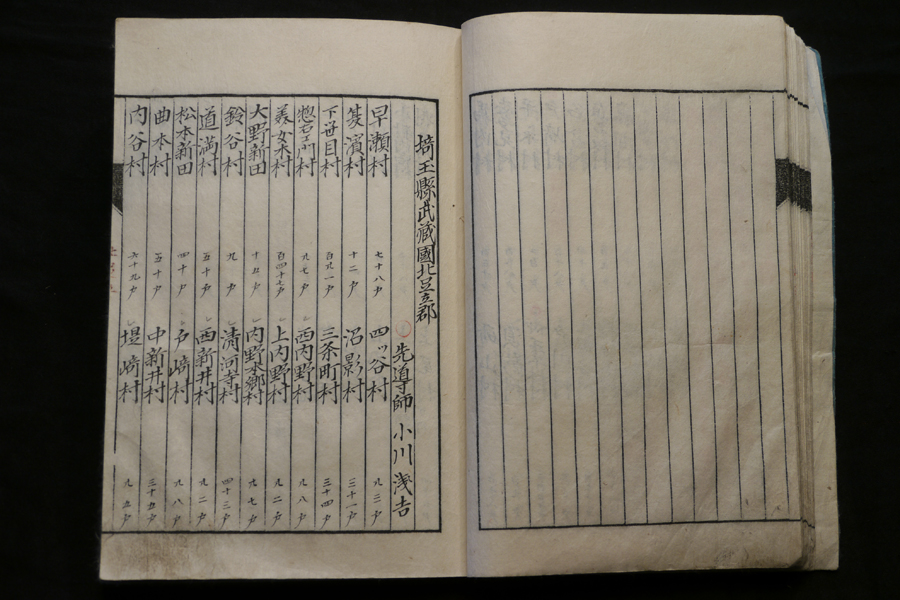 埼玉縣武蔵國北足立郡
先導師 小川 浅吉
早瀬村 七十八戸 四ッ谷村 九三戸
濱村 十二戸 沼影村 三十一戸
下笹目村 百九一戸 三条町村 三十四戸
惣右衛門村 九七戸 西内野村 九八戸
美女木村 百四十七戸 上内野村 九二戸
大野新田 十五戸 内野本郷村 九七戸
鈴谷村 九戸 清河寺村 四十三戸
道満村 五十戸 西新井村 九二戸
松本新田 四十戸 﨑村 九八戸
曲本村 五十戸 中新井村 三十五戸
内谷村 六十九戸 堤﨑村 九五戸